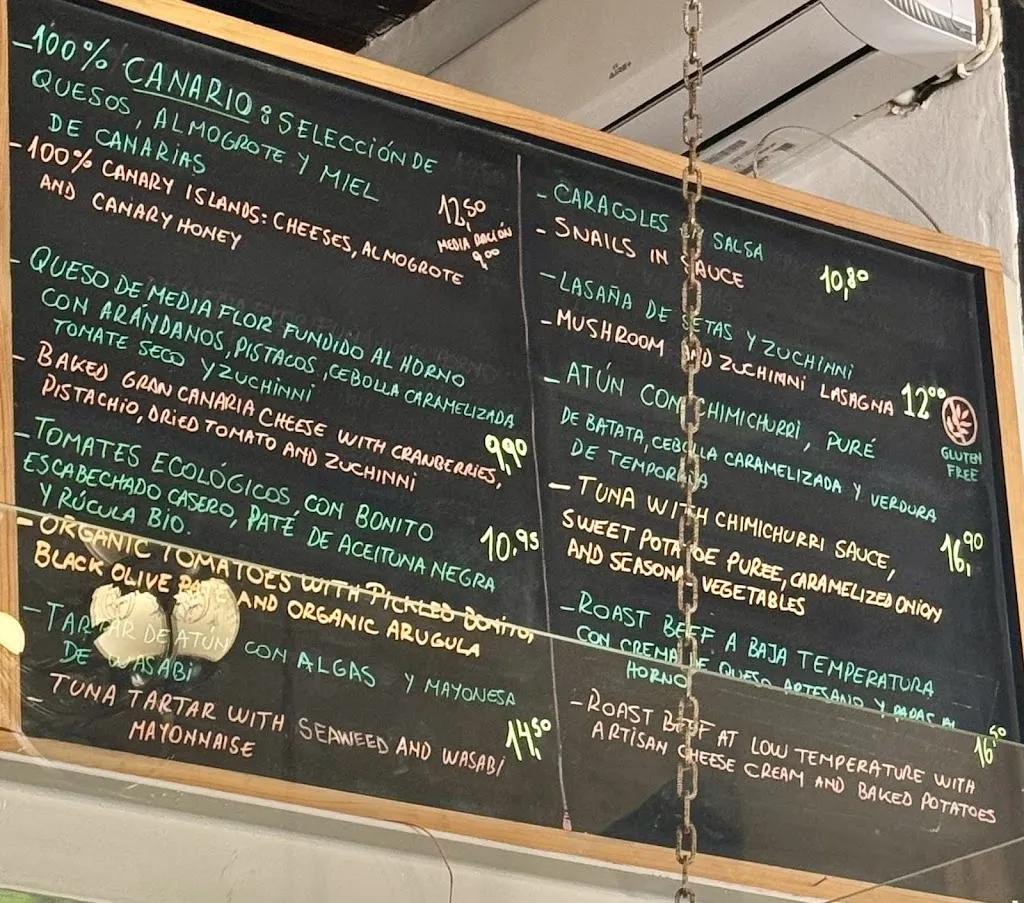 -100% CANARIO: SELECCIÓN DE
QUESOS, ALMOGROTE Y MIEL
DE CANARIAS
12,50
MEDIA RACIÓN
9,00
-100% CANARY ISLANDS: CHEESES, ALMOGROTE
AND CANARY HONEY
- QUESO DE MEDIA FLOR FUNDIDO AL HORNO
CON ARÁNDANOS, PISTACOS, CEBOLLA CARAMELIZADA
TOMATE SECO Y ZUCHINNI
- BAKED GRAN CANARIA CHEESE WITH CRANBERRIES,
PISTACHIO, DRIED TOMATO AND ZUCHINNI
9,90
- TOMATES ECOLÓGICOS, CON BONITO
ESCABECHADO CASERO, PATÉ DE ACEITUNA NEGRA
Y RÚCULA BIO.
10,95
- ORGANIC TOMATOES WITH PICKLED BONITO,
BLACK OLIVE PATE AND ORGANIC ARUGULA
- TARTAR DE ATÚN CON ALGAS Y MAYONESA
DE WASABI
- TUNA TARTAR WITH SEAWEED AND WASABI
MAYONNAISE
14,50
- CARACOLES SALSA
- SNAILS IN SAUCE
10,80
- LASAÑA DE SETAS Y ZUCHINNI
- MUSHROOM AND ZUCHINNI LASAGNA
12,00
GLUTEN
FREE
- ATÚN CON CHIMICHURRI, PURÉ
DE BATATA, CEBOLLA CARAMELIZADA Y VERDURA
DE TEMPORADA
16,90
- TUNA WITH CHIMICHURRI SAUCE,
SWEET POTATOE PUREE, CARAMELIZED ONION
AND SEASONAL VEGETABLES
- ROAST BEEF A BAJA TEMPERATURA
CON CREMA DE QUESO ARTESANO Y PAPAS AL
HORNO
16,50
- ROAST BEEF AT LOW TEMPERATURE WITH
ARTISAN CHEESE CREAM AND BAKED POTATOES